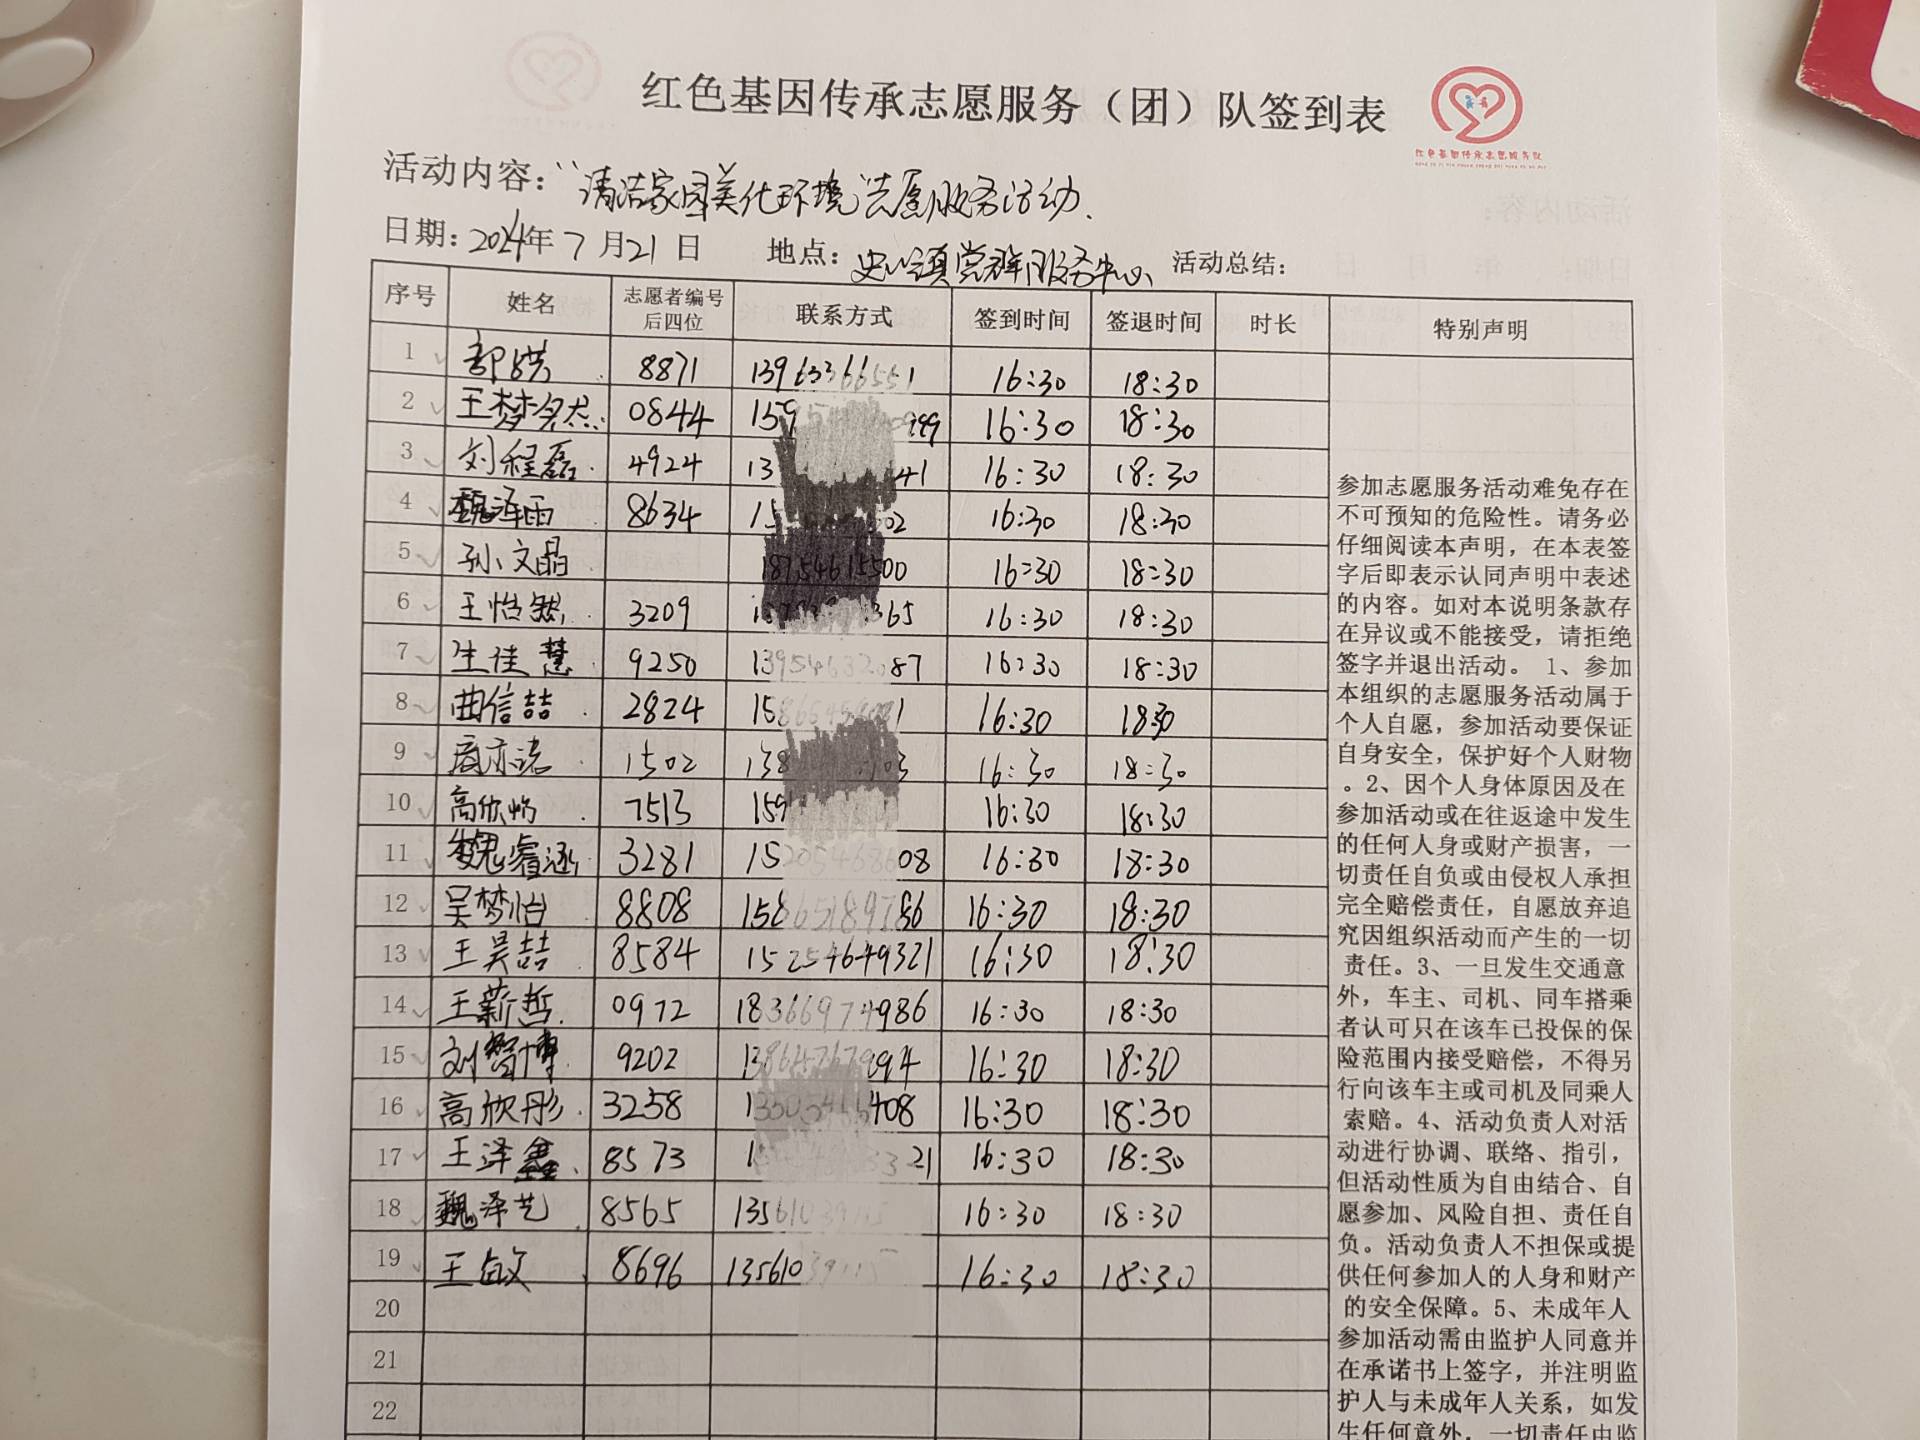 红色基因传承志愿服务（团）队签到表
红色基因传承志愿服务队
活动内容：“清洁家园美化环境”志愿服务活动.
日期：2024年7月21日 地点：史口镇党群服务中心 活动总结：
序号 姓名 志愿者编号后四位 联系方式 签到时间 签退时间 时长 特别声明
1 8871 16:30 18:30
2 王梦 0844 16:30 18:30
3 刘程磊 4924 16:30 18:30
4 魏泽雨 8634 16:30 18:30
5 孙文晶 16:30 18:30
6 王怡然 3209 16:30 18:30
7 生佳慧 9250 16:30 18:30
8 曲信喆 2824 16:30 18:30
9 1502 16:30 18:30
10 高欣怡 7513 16:30 18:30
11 魏睿涵 3281 16:30 18:30
12 吴梦怡 8808 16:30 18:30
13 王吴喆 8584 15254649321 16:30 18:30
14 王薪哲 0972 16:30 18:30
15 刘智博 9202 16:30 18:30
16 高欣彤 3258 16:30 18:30
17 王泽鑫 8573 16:30 18:30
18 魏泽艺 8565 16:30 18:30
19 王 8696 16:30 18:30
20
21
22
参加志愿服务活动难免存在
不可预知的危险性。请务必
仔细阅读本声明，在本表签
字后即表示认同声明中表述
的内容。如对本说明条款存
在异议或不能接受，请拒绝
签字并退出活动。 1、参加
本组织的志愿服务活动属于
个人自愿，参加活动要保证
自身安全，保护好个人财物
。2、因个人身体原因及在
参加活动或在往返途中发生
的任何人身或财产损害，一
切责任自负或由侵权人承担
完全赔偿责任，自愿放弃追
究因组织活动而产生的一切
责任。3、一旦发生交通意
外，车主、司机、同车搭乘
者认可只在该车已投保的保
险范围内接受赔偿，不得另
行向该车主或司机及同乘人
索赔。4、活动负责人对活
动进行协调、联络、指引，
但活动性质为自由结合、自
愿参加、风险自担、责任自
负。活动负责人不担保或提
供任何参加人的人身和财产
的安全保障。5、未成年人
参加活动需由监护人同意并
在承诺书上签字，并注明监
护人与未成年人关系，如发
生任何意外，一切责任由监